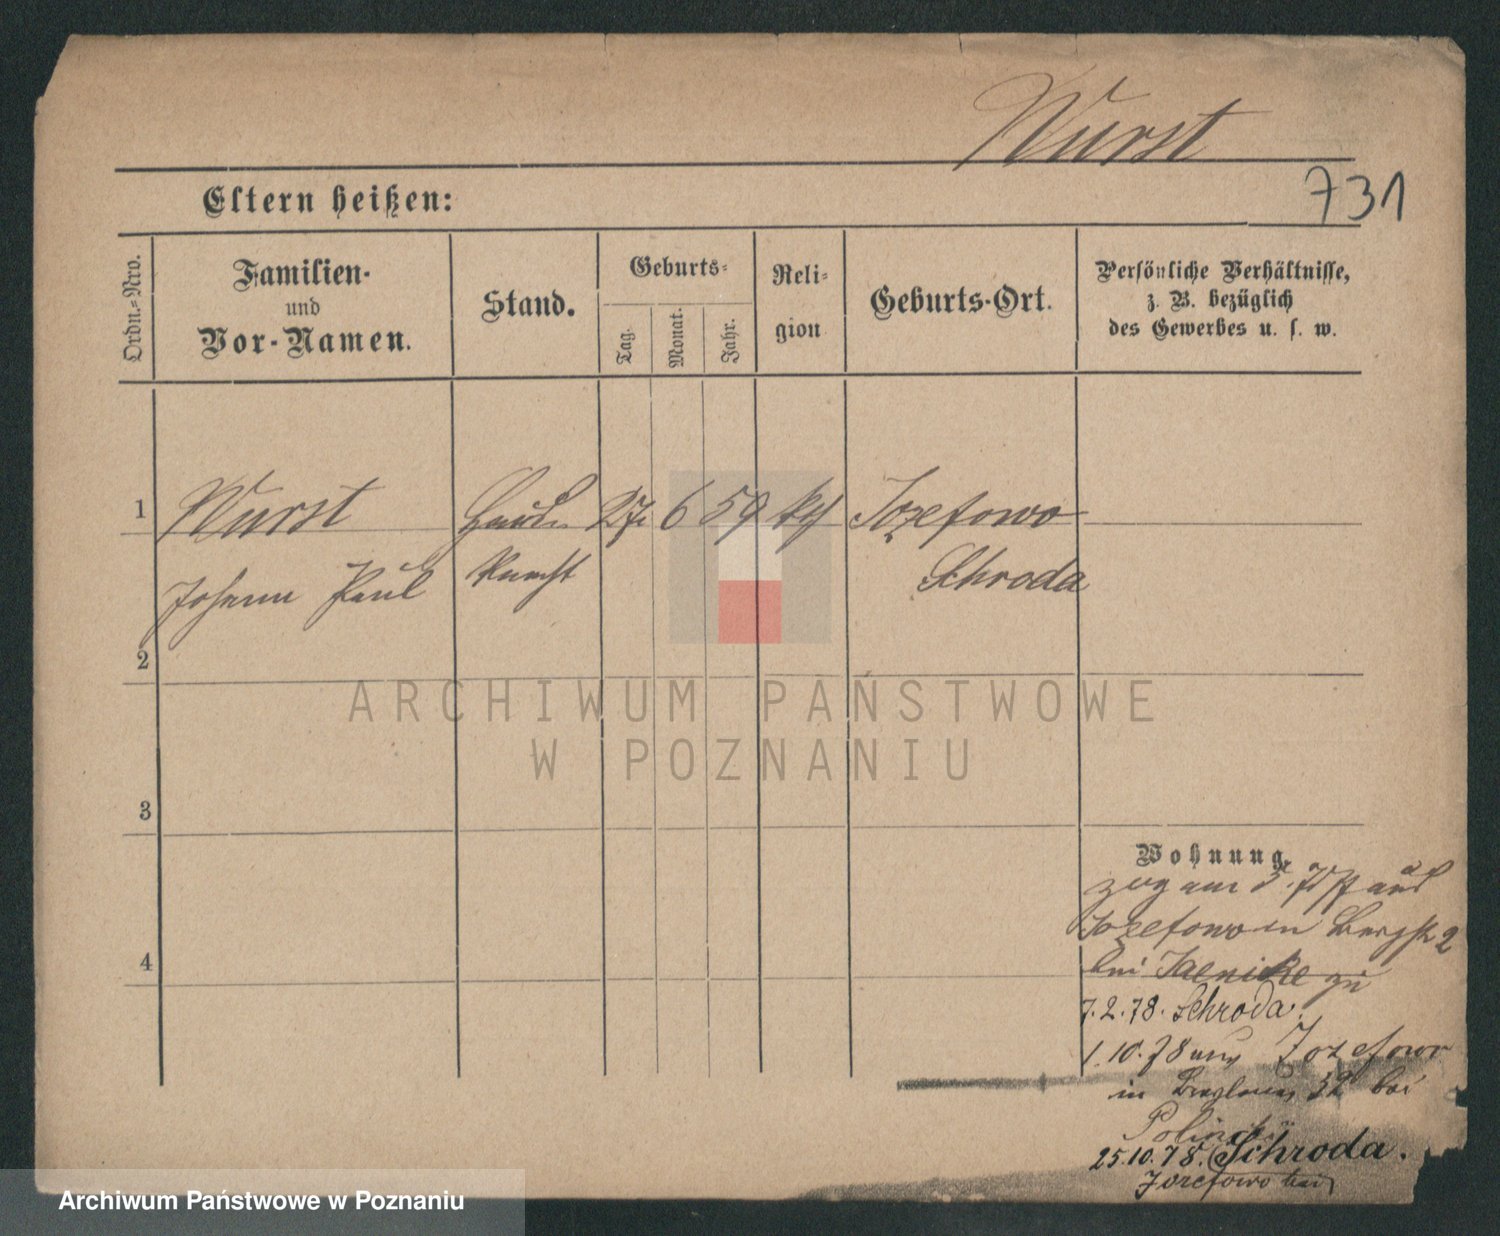 Wurst
731
Eltern heißen:
Ordn.-Nro.
Familien-
und
Vor-Namen.
Stand.
Geburts-
Tag.
Monat.
Jahr.
Reli-
gion
Geburts-Ort.
Persönliche Verhältnisse,
z. B. bezüglich
des Gewerbes u. s. w.
1
Wurst Haus 27 6 59 kh Jozefowo
Johann Paul knecht Schroda
2
ARCHIWUM PAŃSTWOWE
W POZNANIU
3
Wohnung.
zog am 5. aus
Jozefowo in Bergstr 2
4
bei Jaenicke zu
7.2.78. Schroda.
1.10.78 aus Jozefowo
in 32 bei
25.10.78. Schroda.
Jozefowo
Archiwum Państwowe w Poznaniu